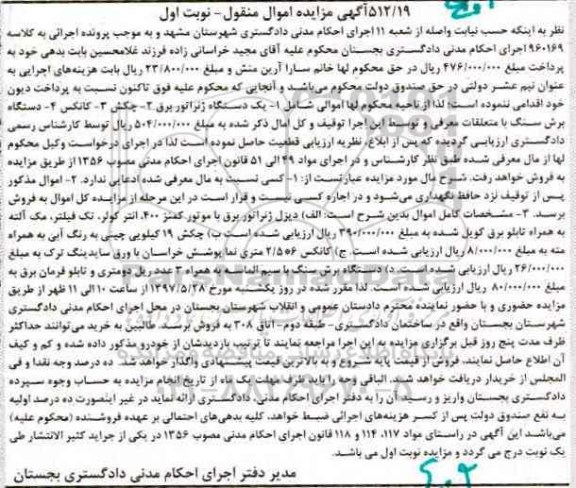 ۵۱۲/۱۹آگهی مزایده اموال منقول- نوبت اول
نظر به اینکه حسب نیابت واصله از شعبه ۱۱ اجرای احکام مدنی دادگستری شهرستان مشهد و به موجب پرونده اجرائی به کلاسه
۹۶۰۱۶۹ اجرای احکام مدنی دادگستری بجستان محکوم علیه آقای مجید خراسانی زاده فرزند غلامحسین بابت بدهی خود به
پرداخت مبلغ ۴۷۶/۰۰۰/۰۰۰ ریال در حق محکوم لها خانم سارا آرین منش و مبلغ ۲۳/۸۰۰/۰۰۰ ریال بابت هزینه‌های اجرایی به
عنوان نیم عشر دولتی در حق صندوق دولت محکوم می‌باشد و آنجایی که محکوم علیه فوق تاکنون نسبت به پرداخت دیون
خود اقدامی ننموده است؛ لذا از ناحیه محکوم لها اموالی شامل ۱- یک دستگاه ژنراتور برق ۲- چکش ۳- کانکس ۴- دستگاه
برش سنگ با متعلقات معرفی و توسط این اجرا توقیف و کل امال ذکر شده به مبلغ ۵۰۴/۰۰۰/۰۰۰ ریال توسط کارشناس رسمی
دادگستری ارزیابی گردیده که پس از ابلاغ، نظریه ارزیابی قطعیت حاصل نموده است لذا در اجرای درخواست وکیل محکوم
لها از مال معرفی شده طبق نظر کارشناس و در اجرای مواد ۴۹ الی ۵۱ قانون اجرای احکام مدنی مصوب ۱۳۵۶ از طریق مزایده
به فروش خواهد رفت. شرح مال مورد مزایده عبارتست از: ۱- کسی نسبت به مال معرفی شده ادعایی ندارد. ۲- اموال مذکور
پس از توقیف نزد حافظ نگهداری می‌شود و در اجاره کسی نیست و قرار است در این مرحله از مزایده کل اموال به فروش
برسد. ۳- مشخصات کامل اموال بدین شرح است: الف) دیزل ژنراتور برق با موتور کمنز ۴۰۰، انتر کولر، تک فیلتر، مک آلته
به همراه تابلو برق کوپل شده به مبلغ ۳۹۰/۰۰۰/۰۰۰ ریال ارزیابی شده است ب) چکش ۱۹ کیلویی چینی به رنگ آبی به همراه
مته به مبلغ ۸/۰۰۰/۰۰۰ ریال ارزیابی شده است. ج) کانکس ۶*۲/۵ متری نما پوشش خراسان با ورق سایدینگ ترک به مبلغ
۲۶/۰۰۰/۰۰۰ ریال ارزیابی شده است. د) دستگاه برش سنگ با سیم الماسه به همراه ۲ عدد ریل دومتری و تابلو فرمان برق به
مبلغ ۸۰/۰۰۰/۰۰۰ ریال ارزیابی شده است. لذا مقرر شده در روز یکشنبه مورخ ۱۳۹۷/۵/۲۸ از ساعت ۱۰ الی ۱۱ ظهر از طریق
مزایده حضوری و با حضور نماینده محترم دادستان عمومی و انقلاب شهرستان بجستان در محل اجرای احکام مدنی دادگستری
شهرستان بجستان واقع در ساختمان دادگستری- طبقه دوم- اتاق ۳۰۸ به فروش برسد. طالبین به خرید می‌توانند حداکثر
ظرف مدت پنج روز قبل برگزاری مزایده به این اجرا مراجعه نمایند تا ترتیب بازدیدشان از خودرو مذکور داده شده و کم و کیف
آن اطلاع حاصل نمایند. فروش از قیمت پایه شروع و به بالاترین قیمت پیشنهادی واگذار خواهد شد. ده درصد وجه نقدا و فی
المجلس از خریدار دریافت خواهد شد، الباقی وجه را باید ظرف مهلت یک ماه از تاریخ انجام مزایده به حساب وجوه سپرده
دادگستری بجستان واریز و رسید آن را به دفتر اجرای احکام مدنی، دادگستری ارائه نماید در غیر اینصورت ده درصد اولیه
به نفع صندوق دولت پس از کسر هزینه‌های اجرائی ضبط خواهد، کلیه بدهی‌های احتمالی بر عهده فروشنده (محکوم علیه)
می‌باشد این آگهی در راستای مواد ۱۱۷، ۱۱۴ و ۱۱۸ قانون اجرای احکام مدنی مصوب ۱۳۵۶ در یکی از جراید کثیر الانتشار طی
یک نوبت درج می گردد و مزایده نوبت اول می باشد.
مدیر دفتر اجرای احکام مدنی دادگستری بجستان